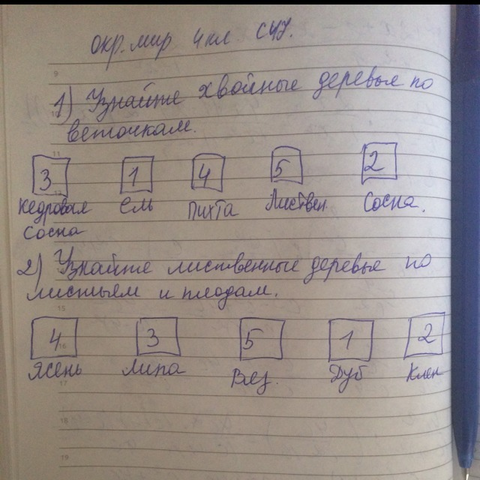 окр. мир 4 кл с 47.
1) Узнайте хвойные деревья по
веточкам.
3 1 4 5 2
Кедровая Ель Пихта Листвен Сосна.
Сосна
2) Узнайте лиственные деревья по
листьям и плодам.
4 3 5 1 2
Ясень Липа Вяз. Дуб Клен